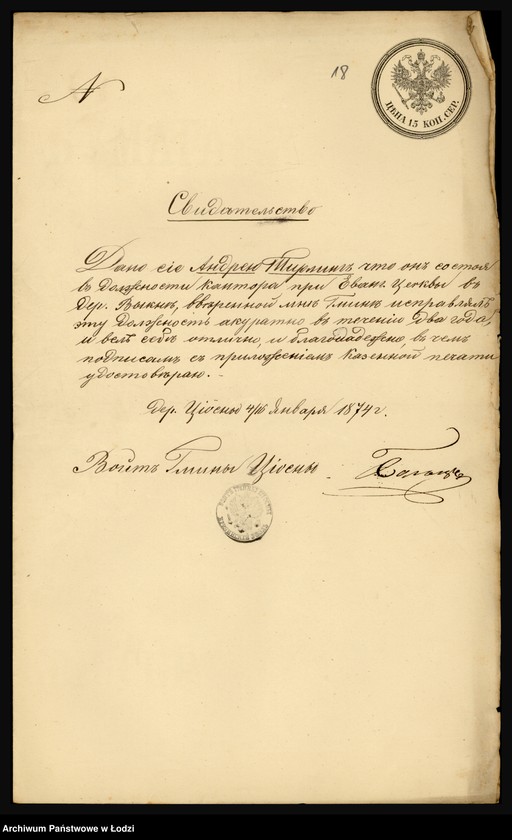 18
ЦѢНА 15 КОП. СЕР.
N
Свидательство
Дано сіе Андрею Тирлингъ что онъ состоя
въ должности кантора при Еванг. Церквы въ
Дер. Выкнѣ, ввѣренной мнѣ Гминѣ исправлялъ
эту должность акуратно въ теченіи два года,
и велъ себѣ отлично, и благонадежно, въ чемъ
подписомъ съ приложеніемъ казенной печати
удостовѣраю. -
Дер. Ціосны 4/16 Января 1874 г.
Войтъ Гмины Ціосны
Archiwum Państwowe w Łodzi